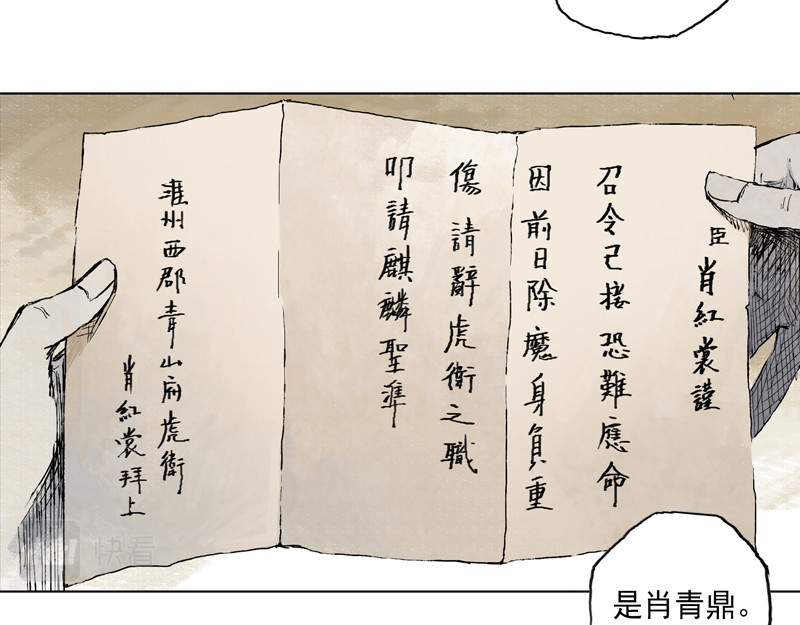 臣肖紅裳謹
召令已接恐難應命
因前日除魔身負重
傷請辭虎衛之職
叩請麒麟聖準
淮州西郡青山府虎衛
肖紅裳拜上
快看
是肖青鼎。